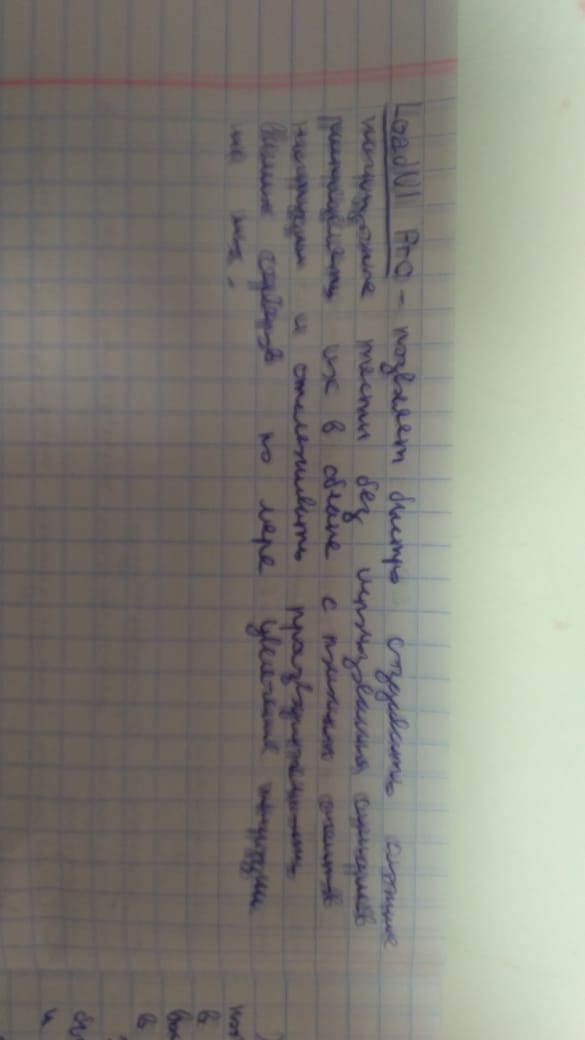 LoadUI Pro - позволяет быстро создавать сложные
нагрузочные тесты без использования сценариев
распределять их в облаке с помощью агентов
нагрузки и отслеживать производительность
Ваших серверов по мере увеличения нагрузки
на них.